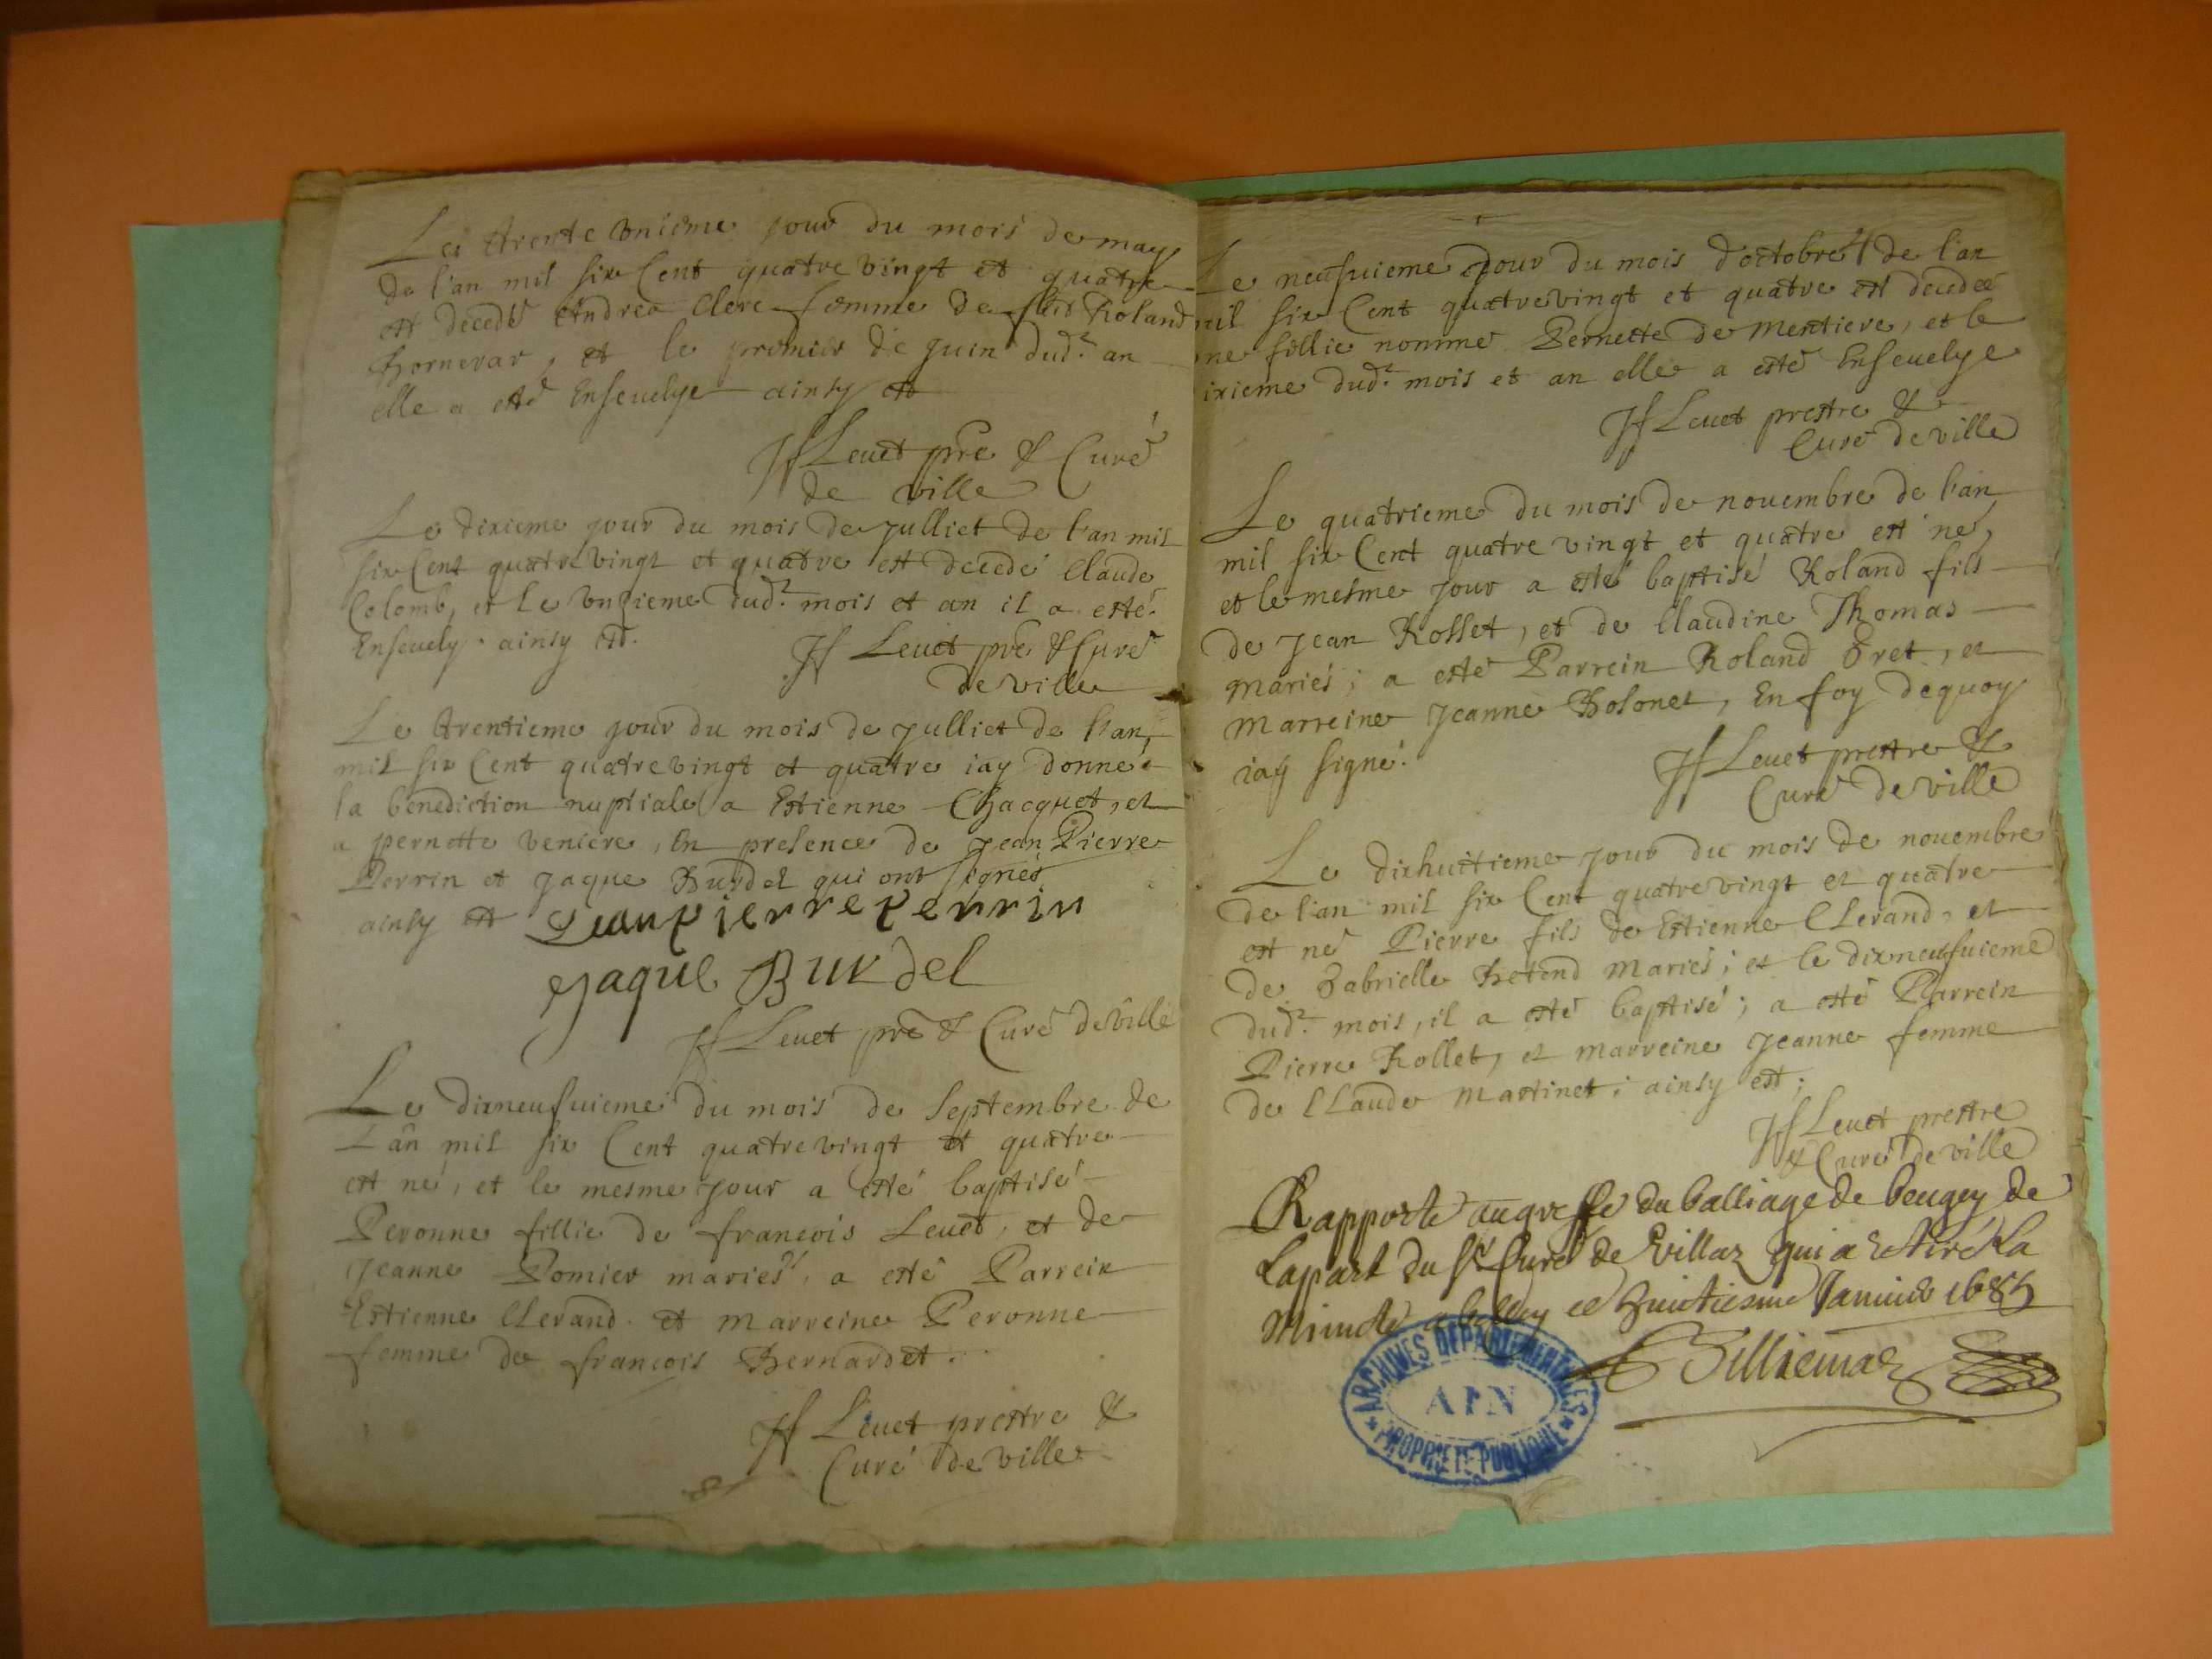 Le trente unieme jour du mois de may
de l'an mil six Cent quatre vingt et quatre
est decedé Andrea Clerc femme de Roland
et le premier de juin dud.t an
elle a esté Ensevelye ainsy est
Jf Levet pre & Curé
de ville
Le dixieme jour du mois de julliet de l'an mil
six Cent quatre vingt et quatre est decedé Claude
Colomb, et le unzieme dud.t mois et an il a esté
Ensevely. ainsy est.
Jf Levet pre & Curé
de ville
Le trentieme jour du mois de julliet de l'an
mil six Cent quatre vingt et quatre iay donné
la benediction nuptiale a Estienne Chacquet, et
a pernette veniere, En presence de Jean Pierre
Perrin et Jaque Burdel qui ont signés
ainsy est Jean pierre perrin
Jaque Burdel
Jf Levet pre & Curé de ville
Le dixneufvieme du mois de Septembre de
L'an mil six Cent quatre vingt et quatre
est né, et le mesme jour a esté baptisé
Peronne fillie de françois Levet, et de
Jeanne Pomier mariés, a esté Parrein
Estienne Clerand. et Marreine Peronne
femme de françois Bernardet.
Jf Levet prestre &
Curé de ville
Le neufvieme jour du mois d'octobre de l'an
mil six Cent quatrevingt et quatre est decedeé
une fillie nomme Pernette de Mentiere, et le
dixieme dud.t mois et an elle a esté Ensevelye
Jf Levet prestre &
Curé de ville
Le quatrieme du mois de novembre de l'an
mil six Cent quatre vingt et quatre est né,
et le mesme jour a esté baptisé Roland fils
de Jean Rosset, et de Claudine Thomas
mariés; a esté Parrein Roland et
Marreine Jeanne Bolonet, En foy dequoy
iay signé.
Jf Levet prestre &
Curé de ville
Le dixhuitieme jour du mois de novembre
de l'an mil six Cent quatre vingt et quatre
est né Pierre fils de Estienne Clerand, et
de Gabrielle Betend mariés; et le dixneufvieme
dud.t mois, il a esté baptisé; a esté Parrein
Pierre Rollet, et marreine Jeanne femme
de Claude Martinet; ainsy est;
Jf Levet prestre
& Curé de ville
Rapporté au greffe du balliage de beugey de
la part du Sr Curé de Villaz qui a retiré La
Minute a belley ce huictiesme Janvier 1685
Billiemaz
ARCHIVES DEPARTEMENTALES
AIN
PROPRIETE PUBLIQUE